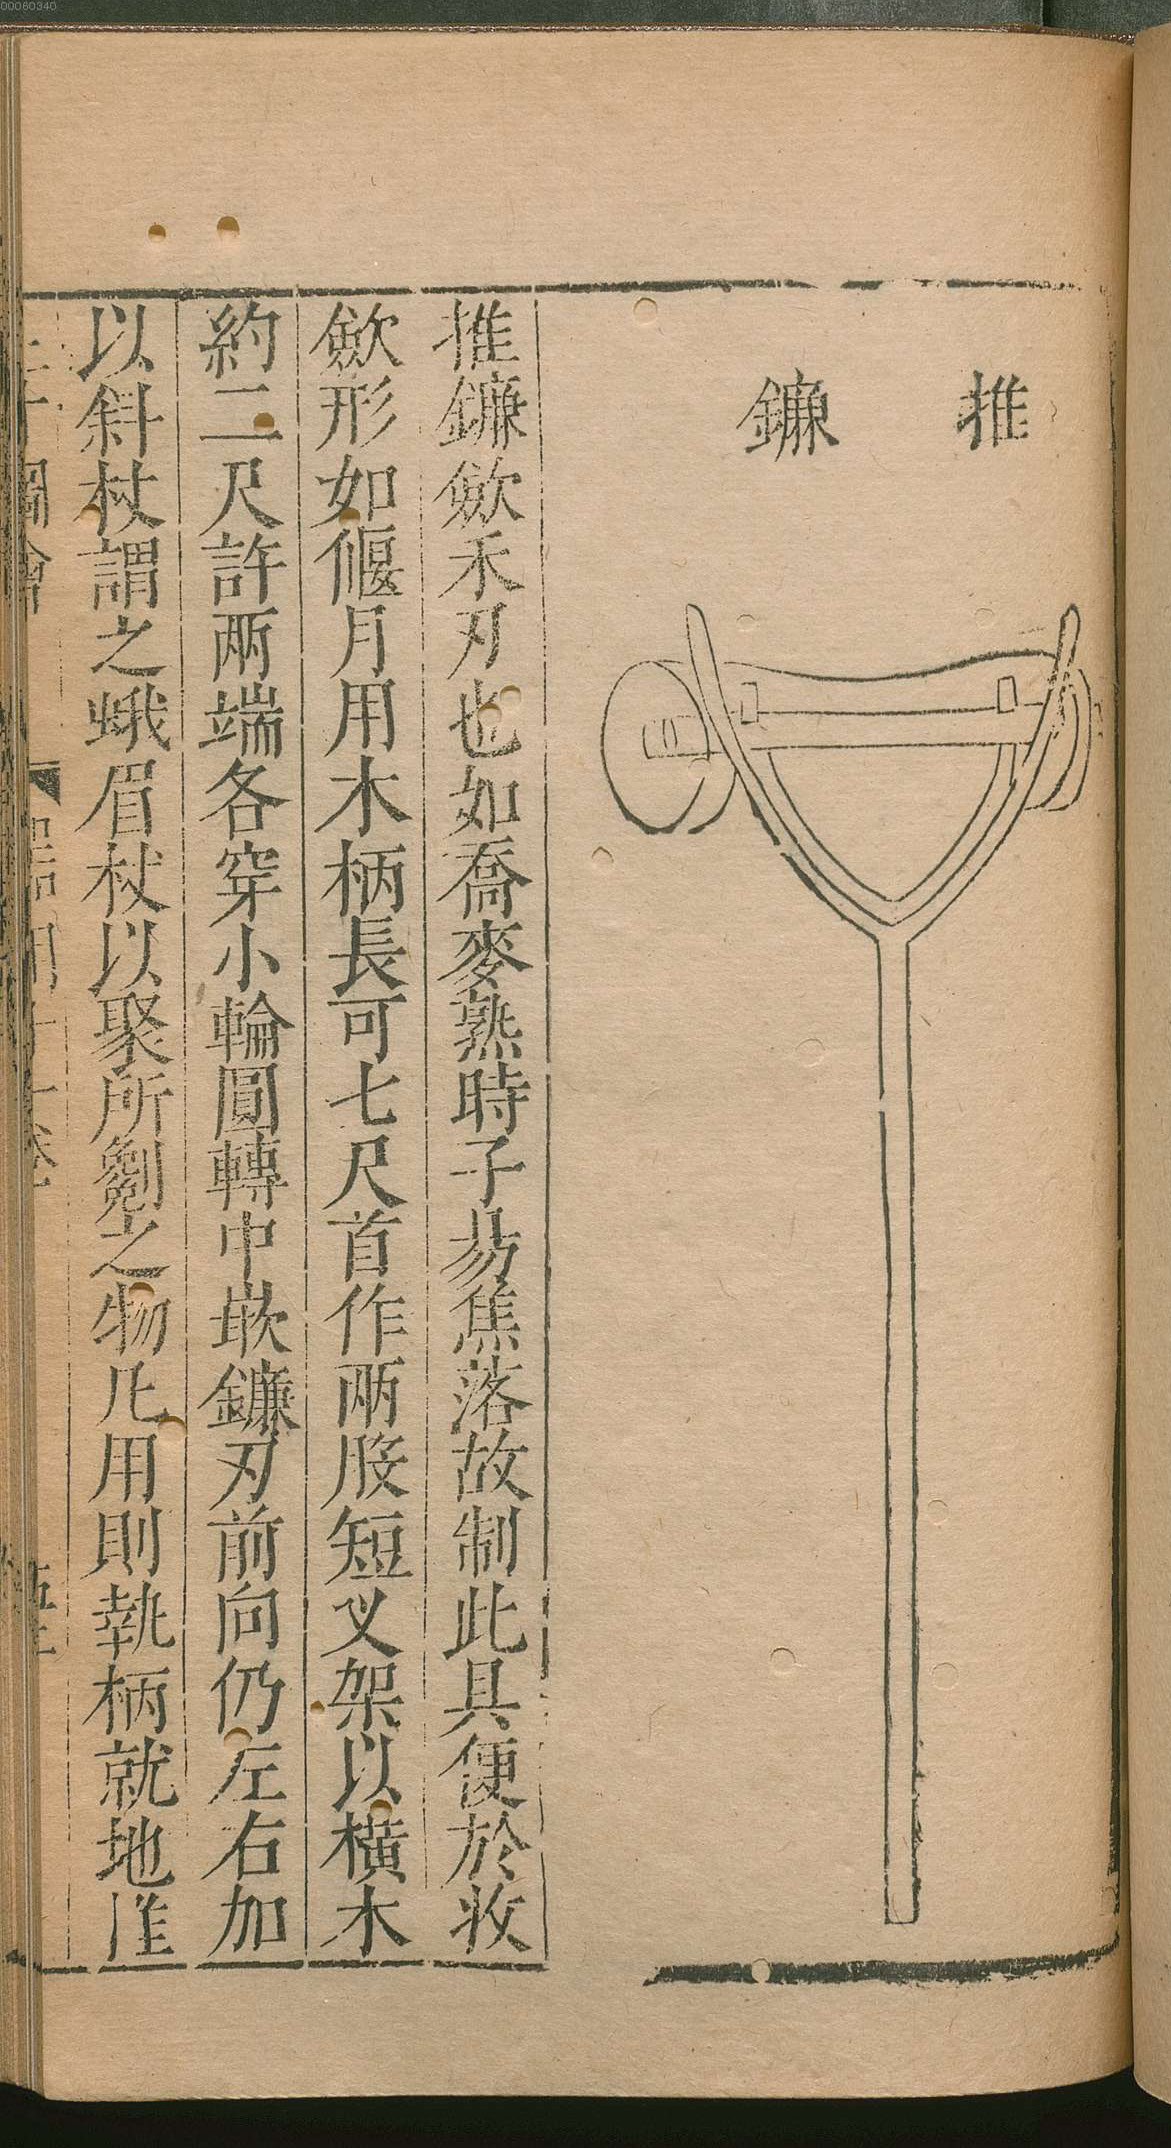 00060340
推鐮
推鐮斂禾刃也如喬麥熟時子易焦落故制此具便於收
斂形如偃月用木柄長可七尺首作兩股短叉架以橫木
約二尺許兩端各穿小輪圓轉中嵌鐮刃前向仍左右加
以斜杖謂之蛾眉杖以聚所劖之物凡用則執柄就地推
圖會